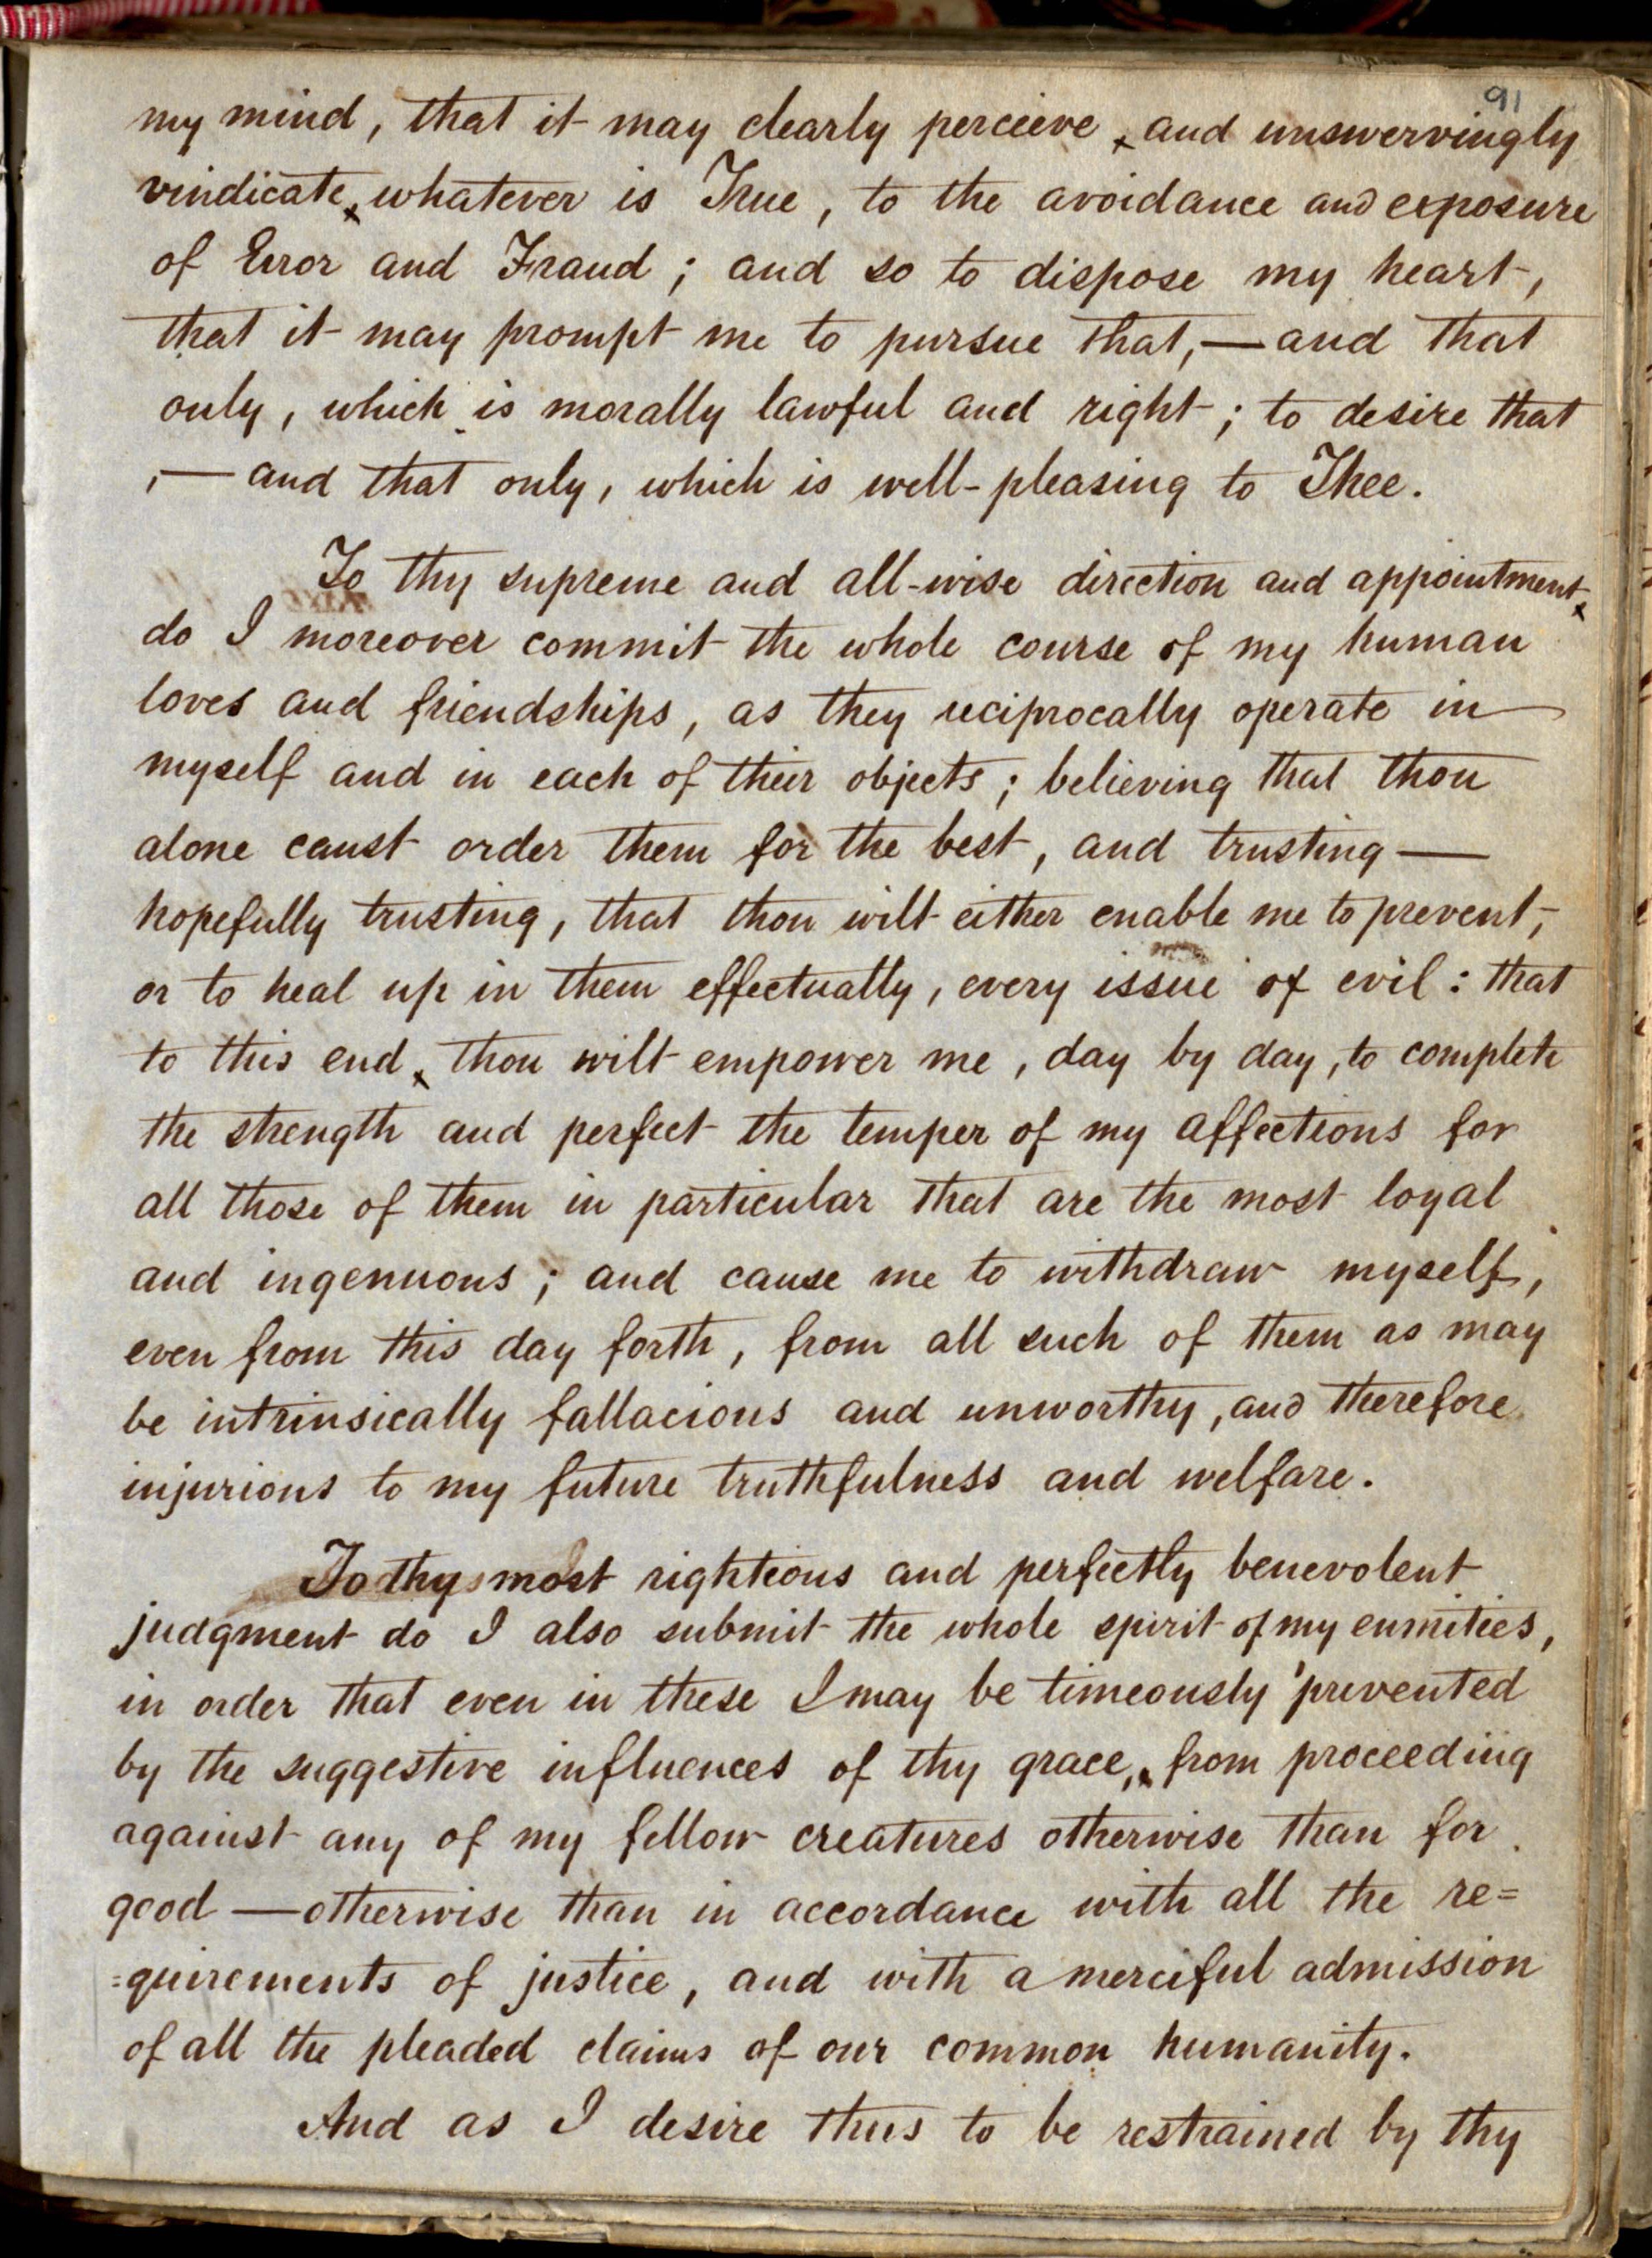 91
my mind, that it may clearly percieve, and unswervingly
vindicate, whatever is True, to the avoidance and exposure
of Error and Fraud; and so to dispose my heart,
that it may prompt me to pursue that,— and that
only, which is morally lawful and right; to desire that
,— and that only, which is well-pleasing to Thee.
To thy supreme and all-wise direction and appointment,
do I moreover commit the whole course of my human
loves and friendships, as they reciprocally operate in
myself and in each of their objects; believing that thou
alone canst order them for the best, and trusting —
hopefully trusting, that thou wilt either enable me to prevent,
or to heal up in them effectually, every issue of evil: that
to this end, thou wilt empower me, day by day, to complete
the strength and perfect the temper of my affections for
all those of them in particular that are the most loyal
and ingenuous; and cause me to withdraw myself,
even from this day forth, from all such of them as may
be intrinsically fallacious and unworthy, and therefore
injurious to my future truthfulness and welfare.
To thy most righteous and perfectly benevolent
judgment do I also submit the whole spirit of my enmities,
in order that even in these I may be timeously prevented
by the suggestive influences of thy grace, from proceeding
against any of my fellow creatures otherwise than for
good — otherwise than in accordance with all the re=
=quirements of justice, and with a merciful admission
of all the pleaded claims of our common humanity.
And as I desire thus to be restrained by thy